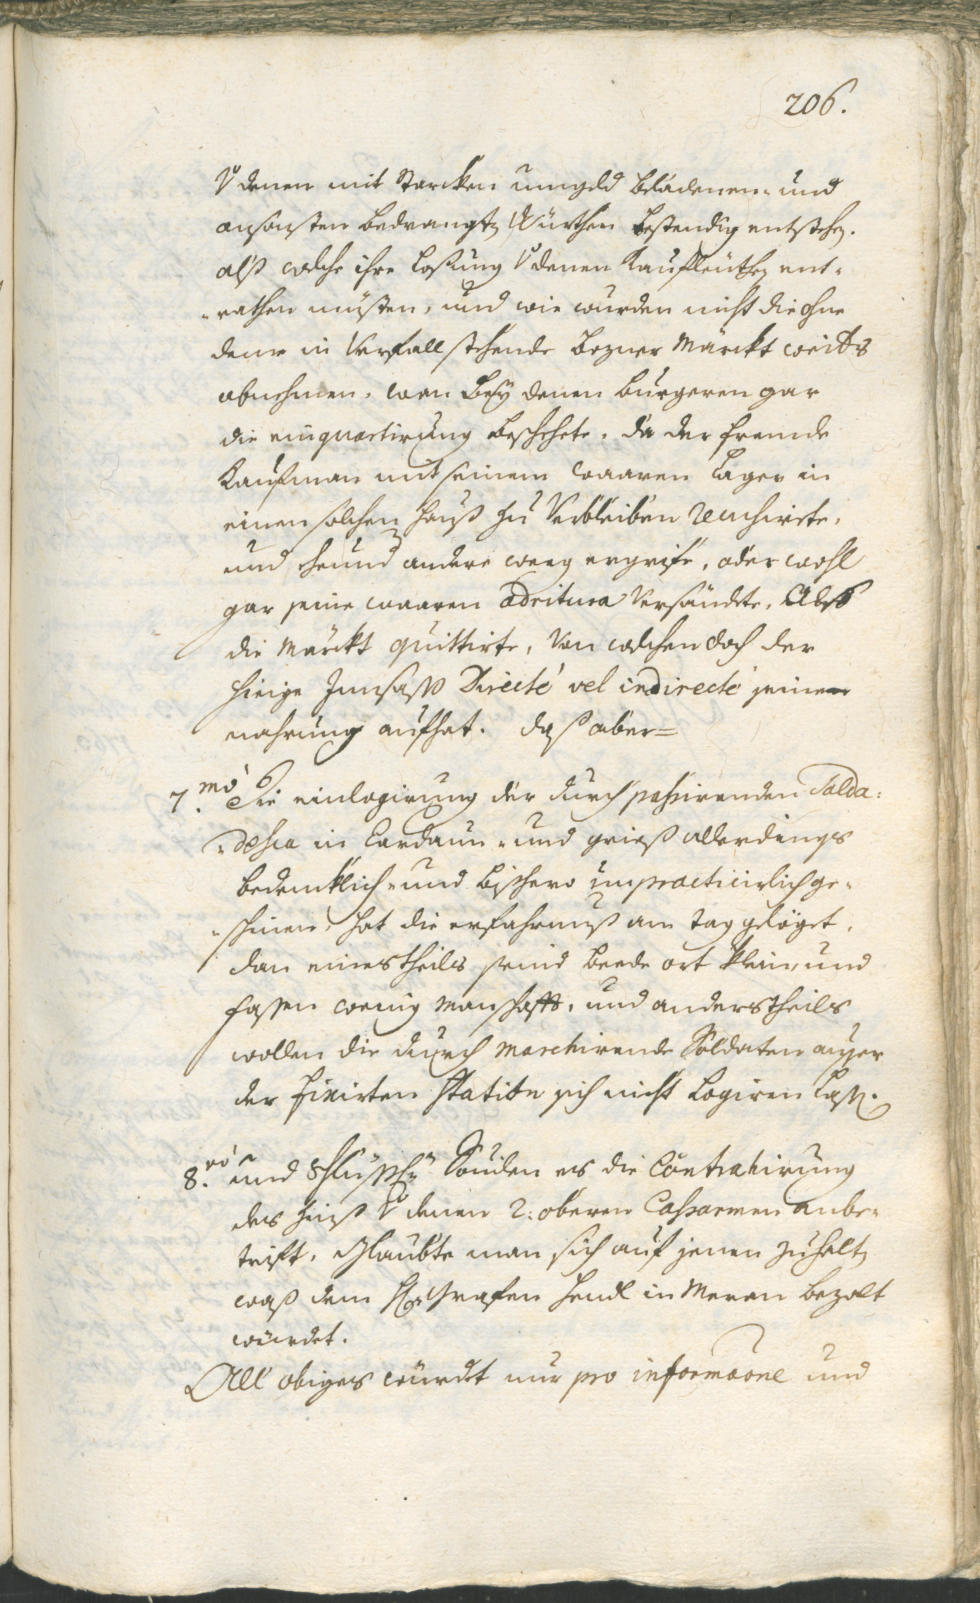 206.
V denen mit Starcken umgeld beladenen- und
ansonsten bedrangtn Würthen bestendig entstehn.
alß welche ihre Losung V denen Kaufleüthn ent-
-rathen müsten, und wie wurden nicht die ohne
deme in Verfall stehende Bozner Märckt weiters
abnehmen, wan beÿ denen burgeren gar
die einquartirung beschehete, da der fremde
Kaufman mit seinem waaren Lager in
einen solchen Hauß zu Verbleiben
und andere weeg ergrife, oder wohl
gar seine waaren adritura Versändete, Alß
die Märckt quittirte, Von welchen doch der
hiesige Innsäss Directè vel indirectè seine
nahrung aufhat. Daß aber=
7.mo Die einlogirung der durch passirenden Solda-
-desca in Cardaun- und grieß allerdings
bedencklich- und bishero impracticirlich ge-
-schinen, hat die erfahrnuß am tag gelöget,
dan eines theils seind beede ort klein, und
fassen wenig manschafft, und anderstheils
wollen die durch marchirende Soldaten ausser
der fixirten Station sich nicht Logiren lassn.
8.vo und schlüsslich Souiln es die Contrahirung
des Hauß V denen 2: oberen Cassarmen anbe-
trifft, Glaubte man sich auf jenen zuhaltn
waß dem H: Grafen Hendl in Meran bezalt
würdet.
All obiges würdt nur pro informaone und